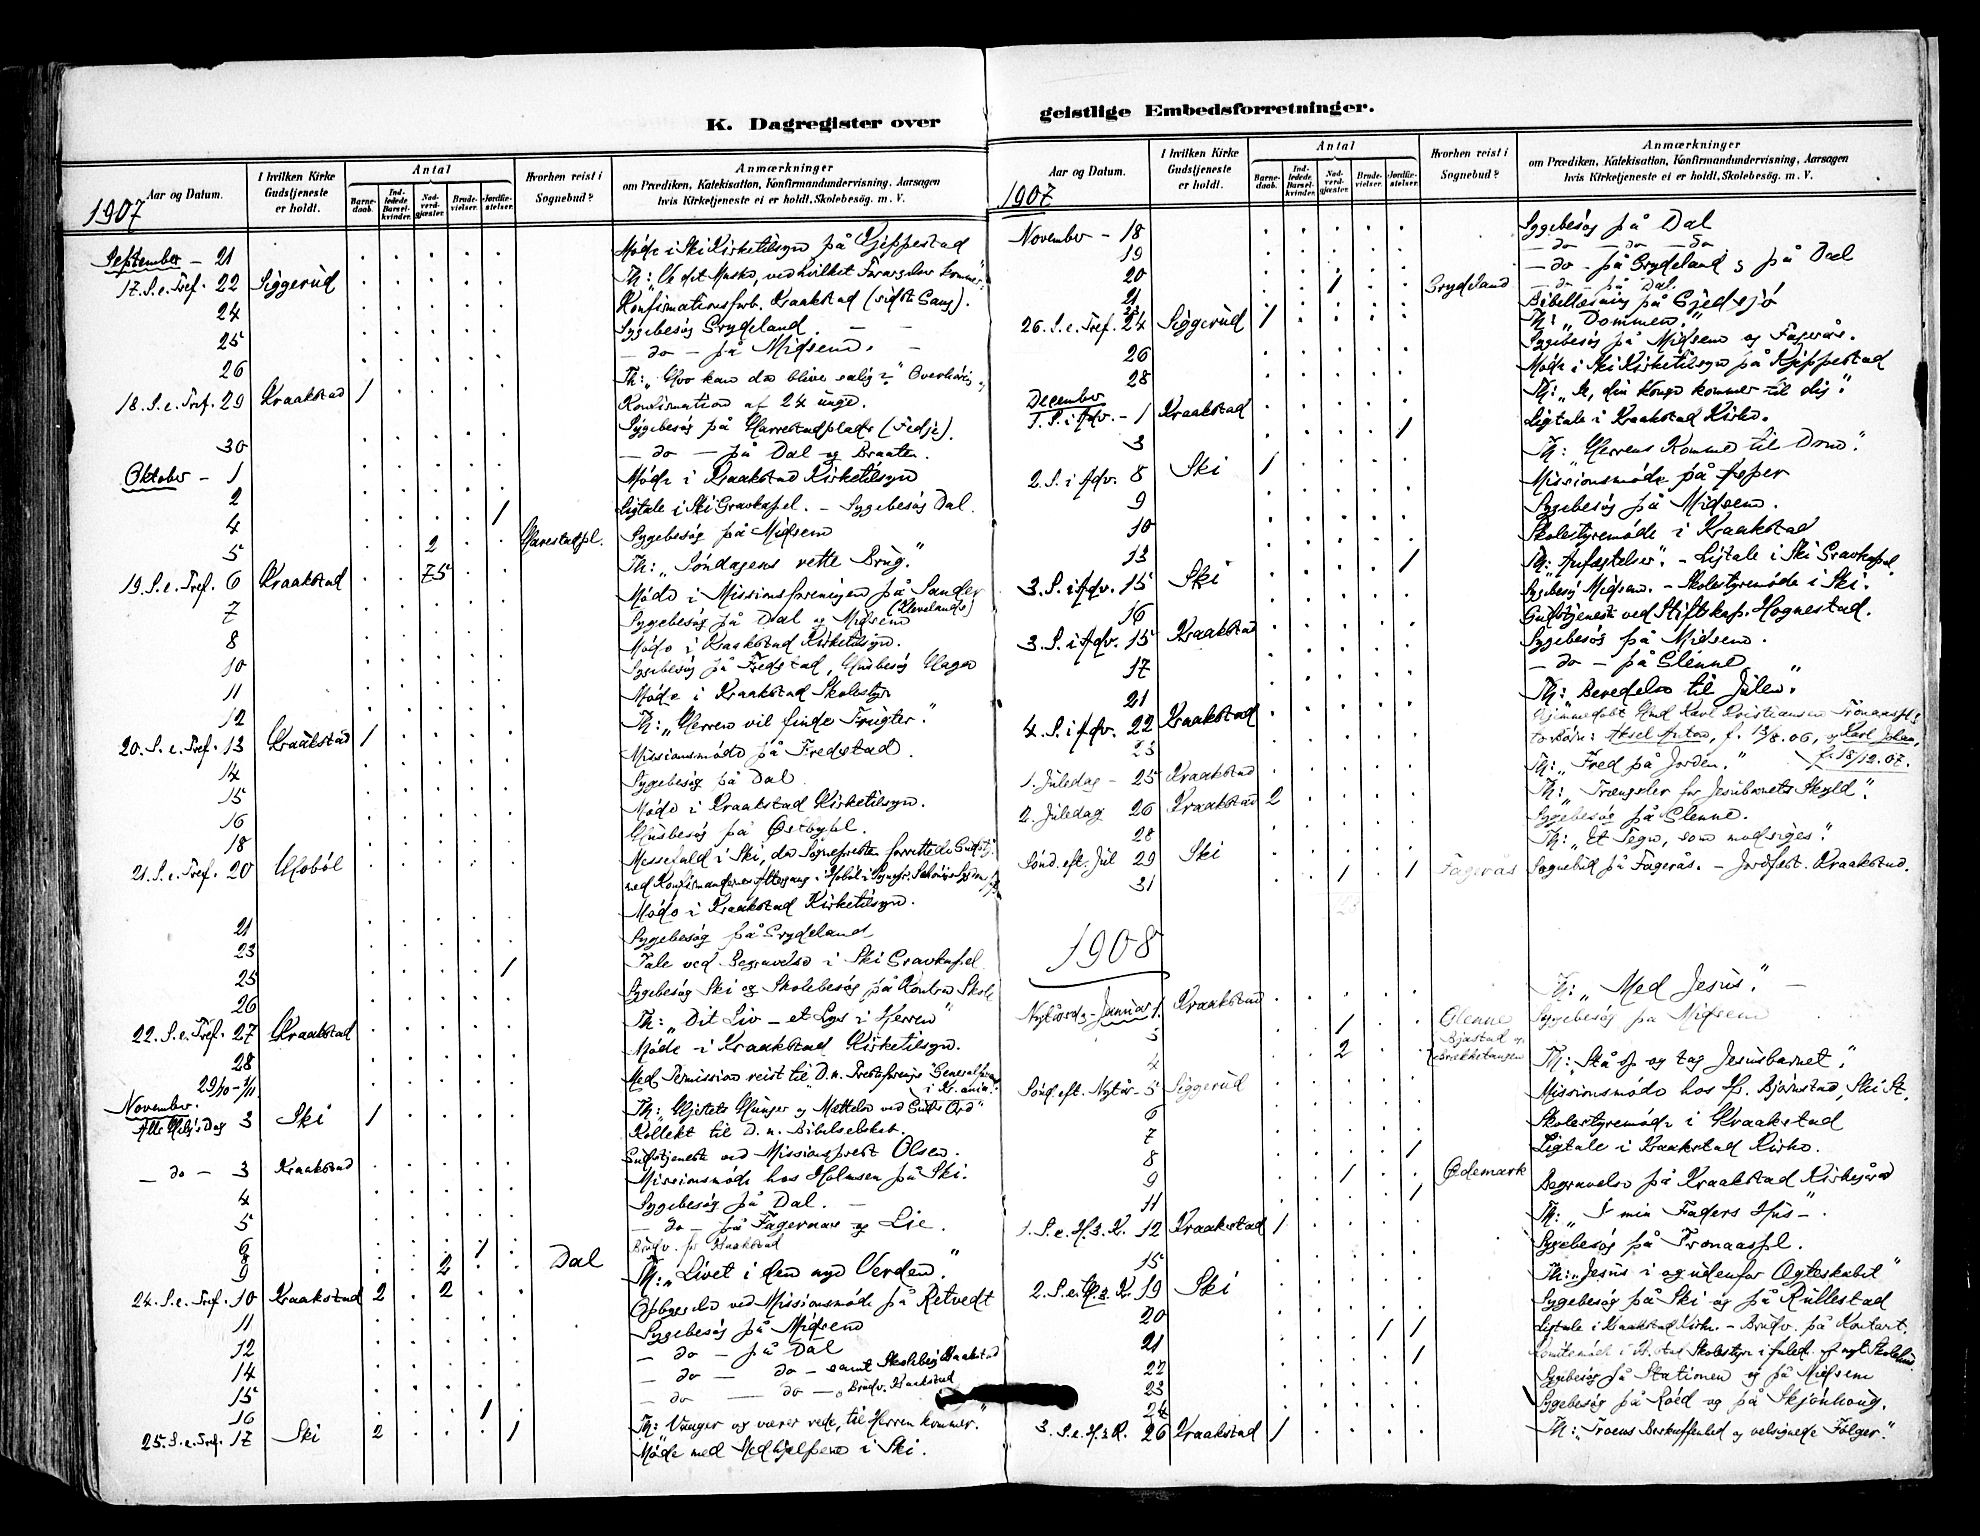 K. Dagregister over
Aar og Datum.
I hvilken Kirke Gudstjeneste er holdt.
Antal
Barne-daab.
Ind-ledede Barsel-kvinder.
Nad-verd-gjæster.
Brude-vielser.
Jordfæ-stelser.
Hvorhen reist i Sognebud?
Anmærkninger
om Prædiken, Katekisation, Konfirmandundervisning, Aarsagen
hvis Kirketjeneste ei er holdt, Skolebesøg. m. V.
1907
September - 21 Møde i Ski Kirketilsyn på Kjeppestad
17. S. e. Tref. 22 Siggerud Th:
24 Konfirmationsforb. Kraakstad (sidste Gang).
25 Sygebesøg Grydeland.
26 - do - på Midsem.
18. S. e. Tref. 29 Kraakstad 1 Th: "Hvo kan da blive salig?" Overhøring
Konfirmation af 24 unge.
30 Sygebesøg på Harrestadplads (Fedje).
Oktober - 1 - do - på Dal og Braaten.
2 Møde i Kraakstad Kirketilsyn
4 1 Ligtale i Ski Gravkapel. - Sygebesøg Dal.
5 2 Harestadpl. Sygebesøg på Midsem
19. S. e. Tref. 6 Kraakstad 75 Th: "Søndagens rette Brug."
7 Møde i Missionsforeningen på Sander (Klevelands)
8 Sygebesøg på Dal og Midsem
10 Møde i Kraakstad Kirketilsyn.
11 Sygebesøg på Fredstad, Husbesøg Hagen
12 Møde i Kraakstad Skolestyre
20. S. e. Tref. 13 Kraakstad 1 Th: "Herren vil finde Frugter."
14 Missionsmøde på Fredstad.
15 Sygebesøg på Dal.
16 Møde i Kraakstad Kirketilsyn.
18 Husbesøg på Østbypl.
21. S. e. Tref. 20 Hobøl Messefald i Ski, da Sognepresten forrettede Gudstj.
med Konfirmandernes Altergang i Hobøl i
21 Møde i Kraakstad Kirketilsyn.
23 Sygebesøg på Grydeland
25 1 Tale ved Begravelse i Ski Gravkapel
26 Sygebesøg Ski og Skolebesøg på Kontra Skole
22. S. e. Tref. 27 Kraakstad Th: "Dit Liv - et Lys i Herren"
28 Møde i Kraakstad Kirketilsyn.
29/10 - 1/11 Med Permission reist til D. n. Presteforenings Generalforsaml. i Kr.ania.
November.
Alle Helg's Dag 3 Ski 1 Th: "Hjertets Hunger og Mættelse ved Guds Ord"
Kollekt til D. n. Bibelselskab.
- do - 3 Kraakstad Gudstjeneste ved Missionsprest Olsen.
4 Missionsmøde hos Holmsen på Ski.
5 Sygebesøg på Dal.
6 1 - do - på Fagernæs og Lie.
8 Brudv. på Kraakstad
9 2 Dal
24. S. e. Tref. 10 Kraakstad 2 2 Th: "Livet i den nye Verden."
11 Opbyggelse ved Missionsmøde på Retvedt
12 Sygebesøg på Midsem
14 - do - på Dal
15 - do - do - samt Skolebesøg Kraakstad
16 1 - do - do - Brudv. Kraakstad
25. S. e. Tref. 17 Ski 2 1 Th: "Vaager og værer rede, til Herren kommer."
Møde med Medhjelperne i Ski.
geistlige Embedsforretninger.
Aar og Datum.
I hvilken Kirke Gudstjeneste er holdt.
Antal
Barne-daab.
Ind-ledede Barsel-kvinder.
Nad-verd-gjæster.
Brude-vielser.
Jordfæ-stelser.
Hvorhen reist i Sognebud?
Anmærkninger
om Prædiken, Katekisation, Konfirmandundervisning, Aarsagen
hvis Kirketjeneste ei er holdt, Skolebesøg. m. V.
1907
November - 18 Sygebesøg på Dal
19 - do - do - do
20 1 Grydeland - do - på Grydeland og på Dal
21 - do - på Dal.
23 Bibellæsning på Gjedsjø
26. S. e. Tref. 24 Siggerud 1 Th: "Dommen."
26 Sygebesøg på Midsem og Fagerås.
28 Møde i Ski Kirketilsyn på Kjeppestad
December
1. S. i Adv. - 1 Kraakstad Th: "Se, din Konge kommer til dig."
3 1 Ligtale i Kraakstad Kirke.
2. S. i Adv. 8 Ski 1 Th: "Herrens Komme til Dom."
9 Missionsmøde på
10 Sygebesøg på Midsem.
13 Skolestyremøde i Kraakstad
3. S. i Adv. 15 Ski 1 Th: "Anfægtelser". - Ligtale i Ski Gravkapel.
16 Sygebesøg Midsem. - Skolestyremøde i Ski.
3. S. i Adv. 15 Kraakstad Gudstjeneste ved Stiftskap. Hognestad.
17 Sygebesøg på Midsem.
21 - do - på Glenne
4. S. i Adv. 22 Kraakstad Th: "Beredelse til Julen."
23 Hjemmedøbt hos Karl Kristiansen Tronaaspl.s
to Børn: Aksel Anton, f. 13/8.06, og Karl Johan, f. 18/12.07.
1. Juledag - 25 Kraakstad Th: "Fred på Jorden."
2. Juledag 26 Kraakstad 2 Th: "Trængsler for Jesubarnets Skyld."
28 Sygebesøg på Glenne.
Sønd. eft. Jul 29 Ski Th: "Et Tegn, som modsiges."
31 1 1 Fagerås Sognebud på Fagerås. - Jordfæst. Kraakstad.
1908
Nytårsdag - Januar 1. Kraakstad Th: "Med Jesus."
3 1 Glenne Sygebesøg på Midsem
4 2 Bjastad og Brekkstangen
Sønd. eft. Nytår - 5 Siggerud Th: "Stå op og tag Jesusbarnet".
6 Missionsmøde hos Hr. Bjørnstad, Ski St.
7 Skolestyremøde i Kraakstad
8 1 Ligtale i Kraakstad Kirke.
9 1 Ødemark
11 1 Begravelse på Kraakstad Kirkegård
1. S. e. H. 3. K. 12 Kraakstad 1 Th: "I min Faders Hus".
15 Sygebesøg på Tronaaspl.
2. S. e. H. 3. K. 19 Ski Th: "Jesus i og udenfor Ægteskabet"
20 Sygebesøg på Ski og på Rullestad
21 1 1 Ligtale i Kraakstad Kirke. - Brudv. på Kontoret.
22 1
23 Sygebesøg på Stationen og på Midsem
24 Sygebesøg på Roed og på Skjønhaug.
3. S. e. H. 3. K. 26 Kraakstad 1 Th: "Troens Beskaffenhed og velsignede Følger."